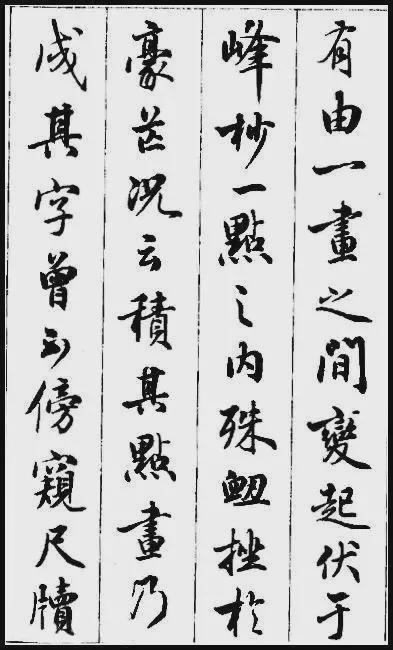 有由一畫之間變起伏于
峰杪一點之内殊衂挫於
豪芒况云積其點畫乃
成其字曾不傍窺尺牘